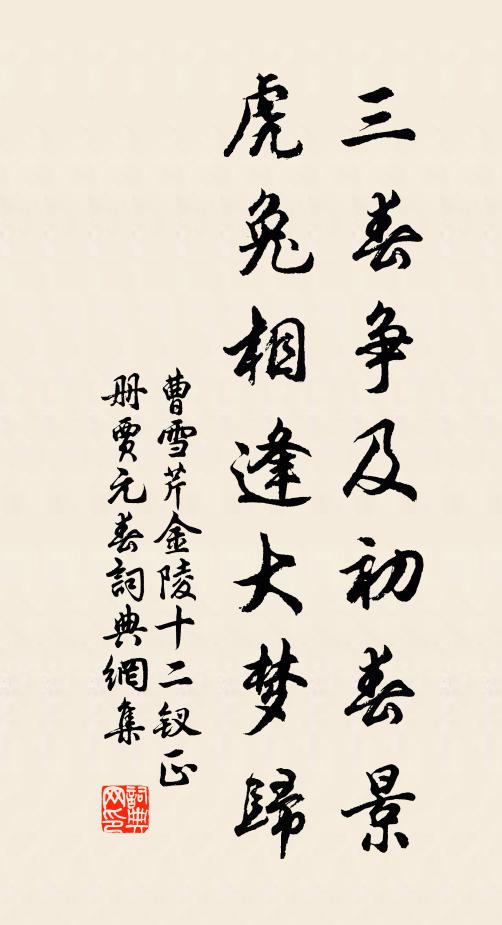 三春争及初春景
虎兔相逢大梦歸
曹雪芹金陵十二釵正
册賈元春詞典網集
詞典网印